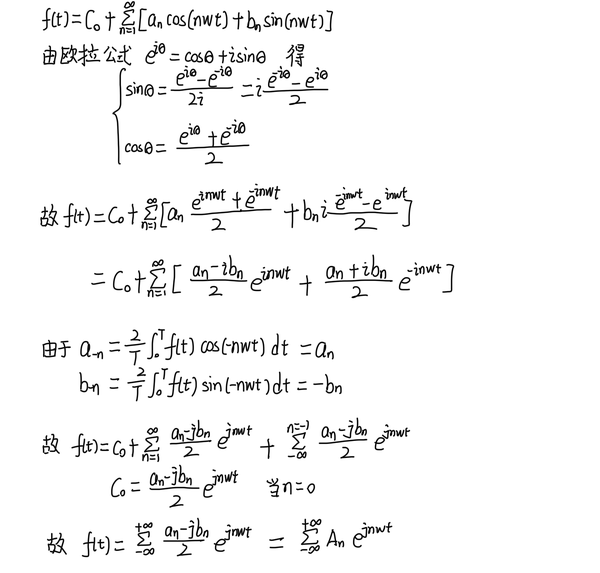 f(t)=C₀+∑_{n=1}^{∞}[aₙcos(nwt)+bₙsin(nwt)]
由欧拉公式 e^{iθ}=cosθ+isinθ 得
{ sinθ=\frac{e^{iθ}-e^{-iθ}}{2i}=i\frac{e^{-iθ}-e^{iθ}}{2}
cosθ=\frac{e^{iθ}+e^{-iθ}}{2}
故 f(t)=C₀+∑_{n=1}^{∞}[aₙ\frac{e^{inwt}+e^{-inwt}}{2}+bₙi\frac{e^{-inwt}-e^{inwt}}{2}]
=C₀+∑_{n=1}^{∞}[\frac{aₙ-ibₙ}{2}e^{inwt}+\frac{aₙ+ibₙ}{2}e^{-inwt}]
由于 a₋ₙ=\frac{2}{T}∫₀^{T}f(t)cos(-nwt)dt=aₙ
b₋ₙ=\frac{2}{T}∫₀^{T}f(t)sin(-nwt)dt=-bₙ
故 f(t)=C₀+∑_{n=1}^{∞}\frac{aₙ-jbₙ}{2}e^{jnwt}+∑_{-∞}^{n=-1}\frac{aₙ-jbₙ}{2}e^{jnwt}
C₀=\frac{aₙ-jbₙ}{2}e^{jnwt} 当n=0
故 f(t)=∑_{-∞}^{+∞}\frac{aₙ-jbₙ}{2}e^{jnwt}=∑_{-∞}^{+∞}Aₙe^{jnwt}